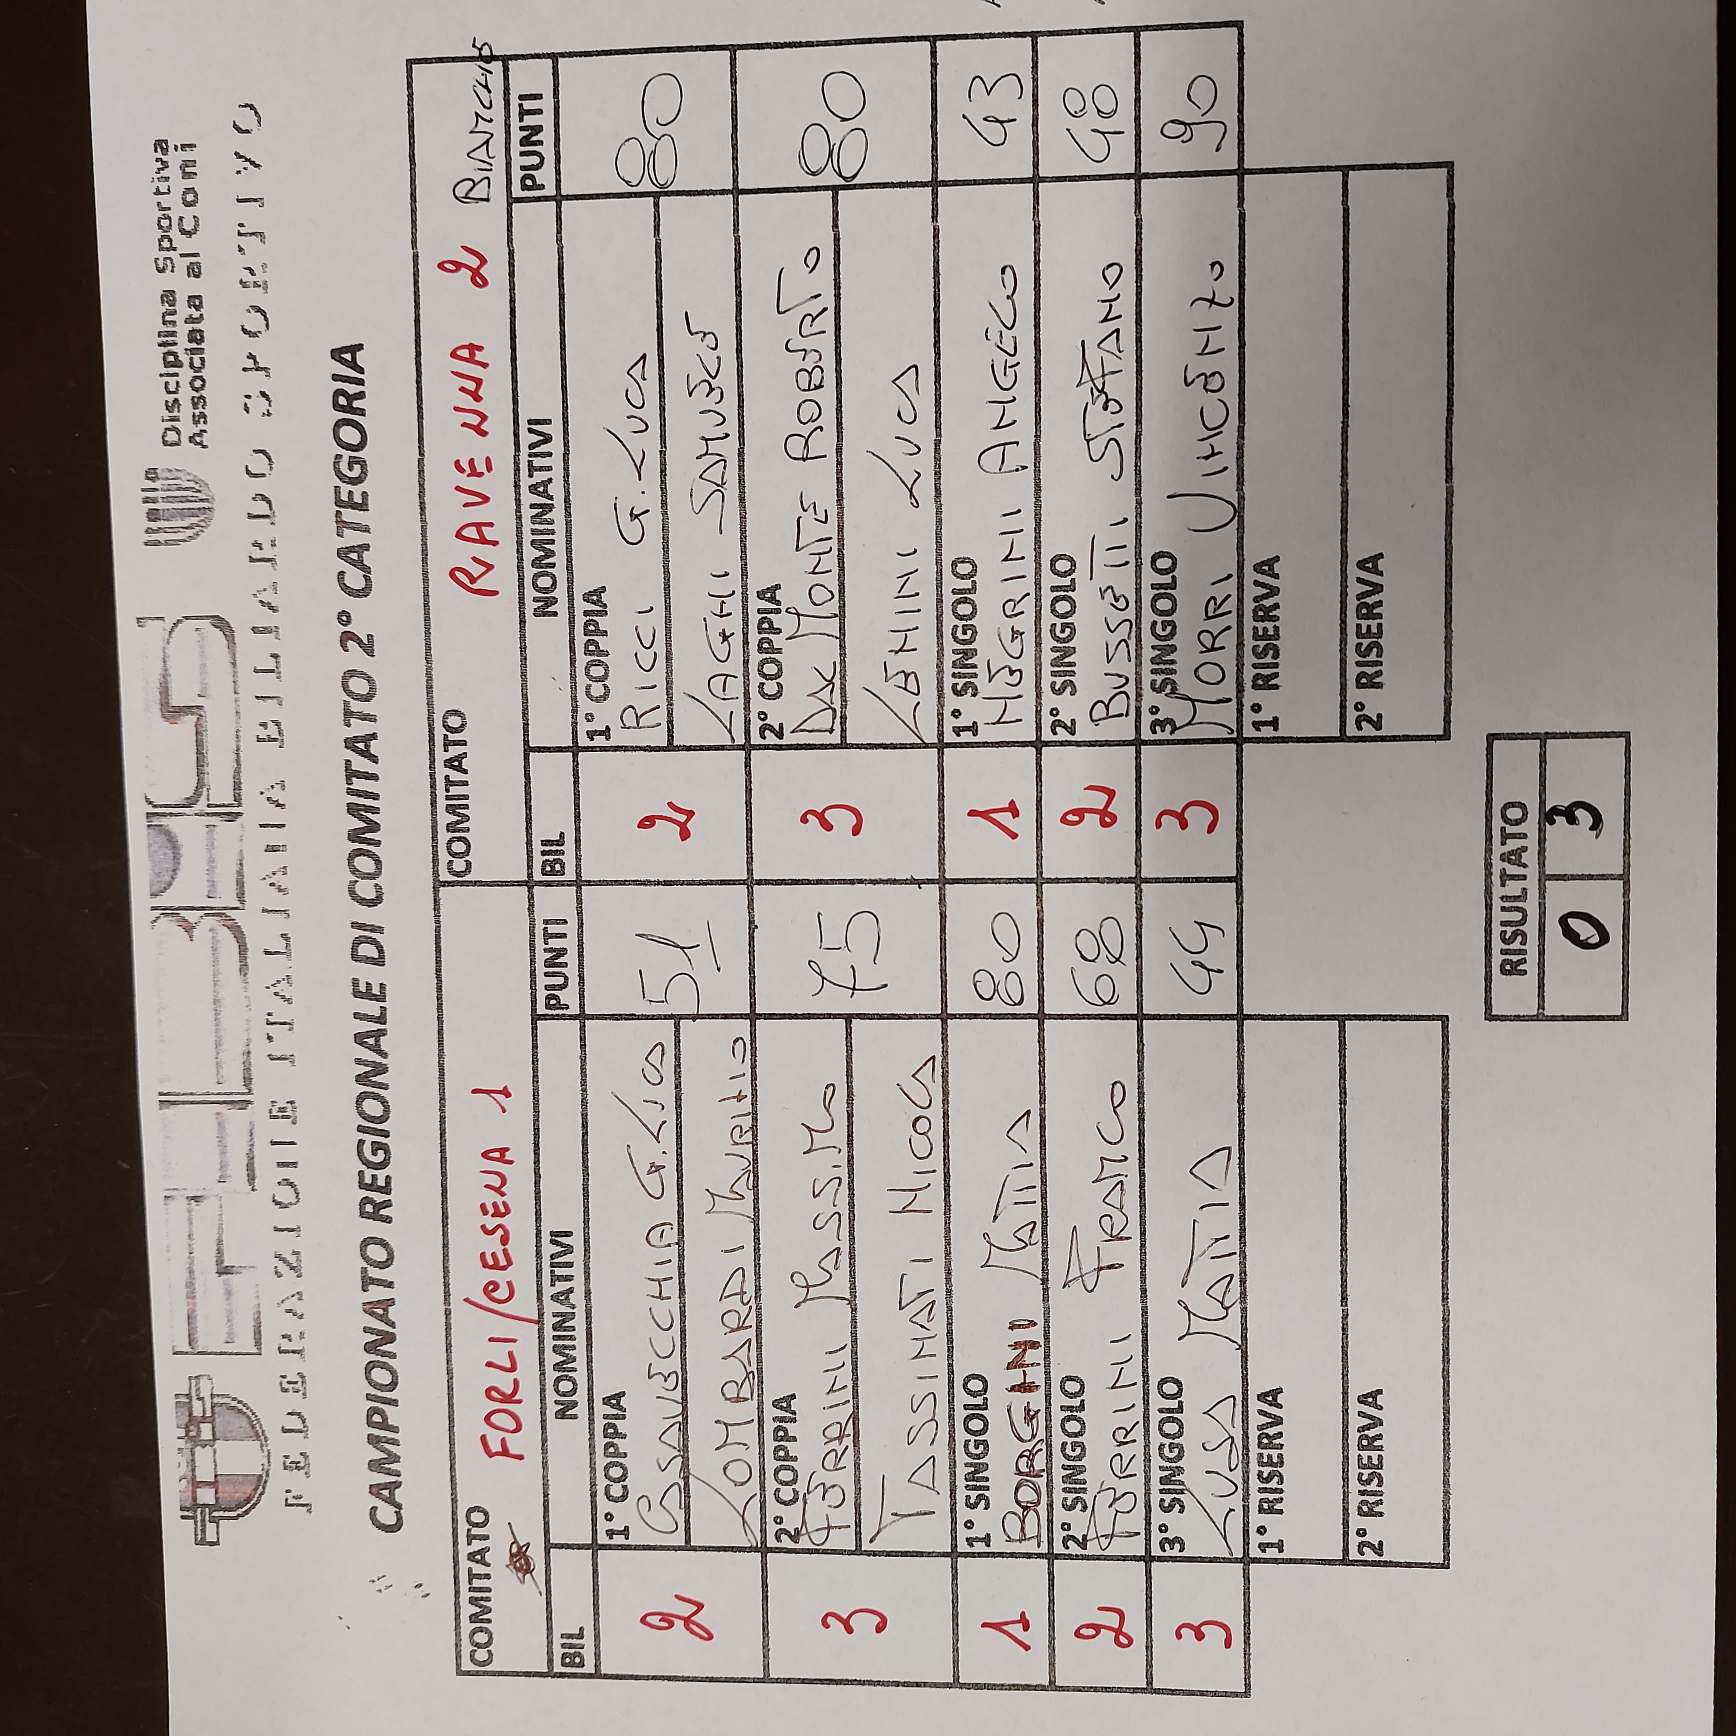 FIBiS
Disciplina Sportiva
Associata al Coni
FEDERAZIONE ITALIANA BILIARDO SPORTIVO
CAMPIONATO REGIONALE DI COMITATO 2° CATEGORIA
COMITATO FORLI/CESENA 1 COMITATO RAVENNA 2 BIANCHE
BIL NOMINATIVI PUNTI BIL NOMINATIVI PUNTI
1° COPPIA 1° COPPIA
2 CASAVECCHIA G.LUCA 51 2 RICCI G.LUCA 80
LOMBARDI MAURIZIO LAGHI SAMUELE
2° COPPIA 2° COPPIA
3 FERRINI MASSIMO 75 3 DAL MONTE ROBERTO 80
TASSINATI NICOLA LEONINI LUCA
1° SINGOLO 1° SINGOLO
1 BORGHINI MATTIA 80 1 NEGRINI ANGELO 43
2° SINGOLO 2° SINGOLO
2 FERRINI FRANCO 68 2 BUSSETTI STEFANO 48
3° SINGOLO 3° SINGOLO
3 LUSA MATTIA 44 3 MORRI VINCENZO 90
1° RISERVA 1° RISERVA
2° RISERVA 2° RISERVA
RISULTATO
0 3